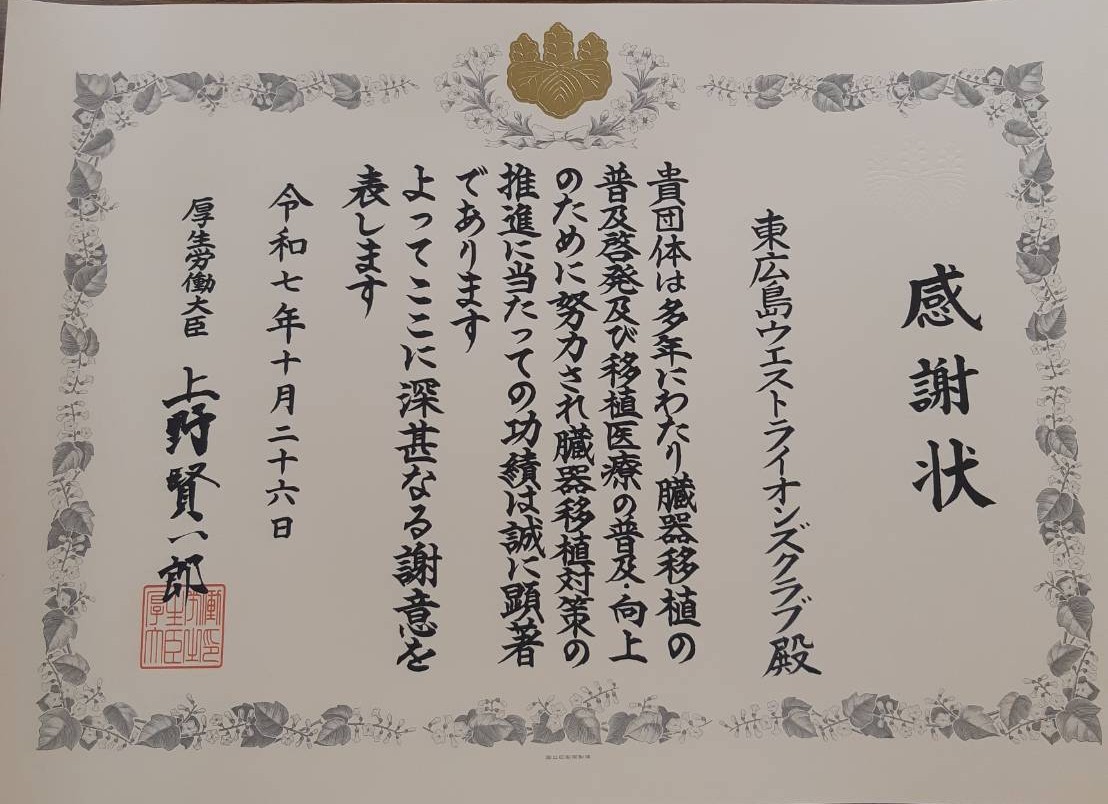 感謝状
東広島ウエストライオンズクラブ殿
貴団体は多年にわたり臓器移植の
普及啓発及び移植医療の普及・向上
のために努力され臓器移植対策の
推進に当たっての功績は誠に顕著
であります
よってここに深甚なる謝意を
表します
令和七年十月二十六日
厚生労働大臣 上野賢一郎